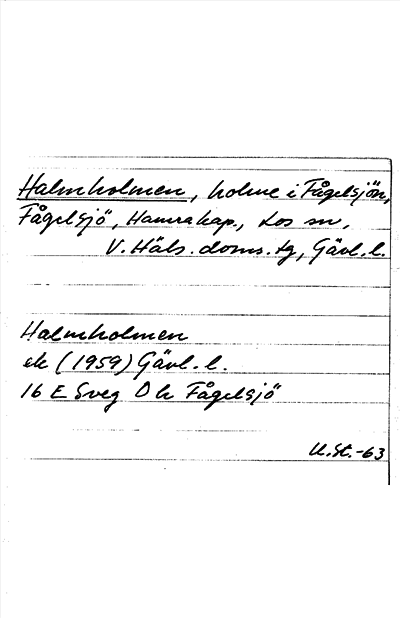 Halmholmen, holme i Fågelsjön,
Fågelsjö, Hamra kap., Los sn,
V. Häls. doms. tg, Gävl. l.
Halmholmen
ek (1959) Gävl. l.
16 E Sveg D h Fågelsjö
U.St.-63